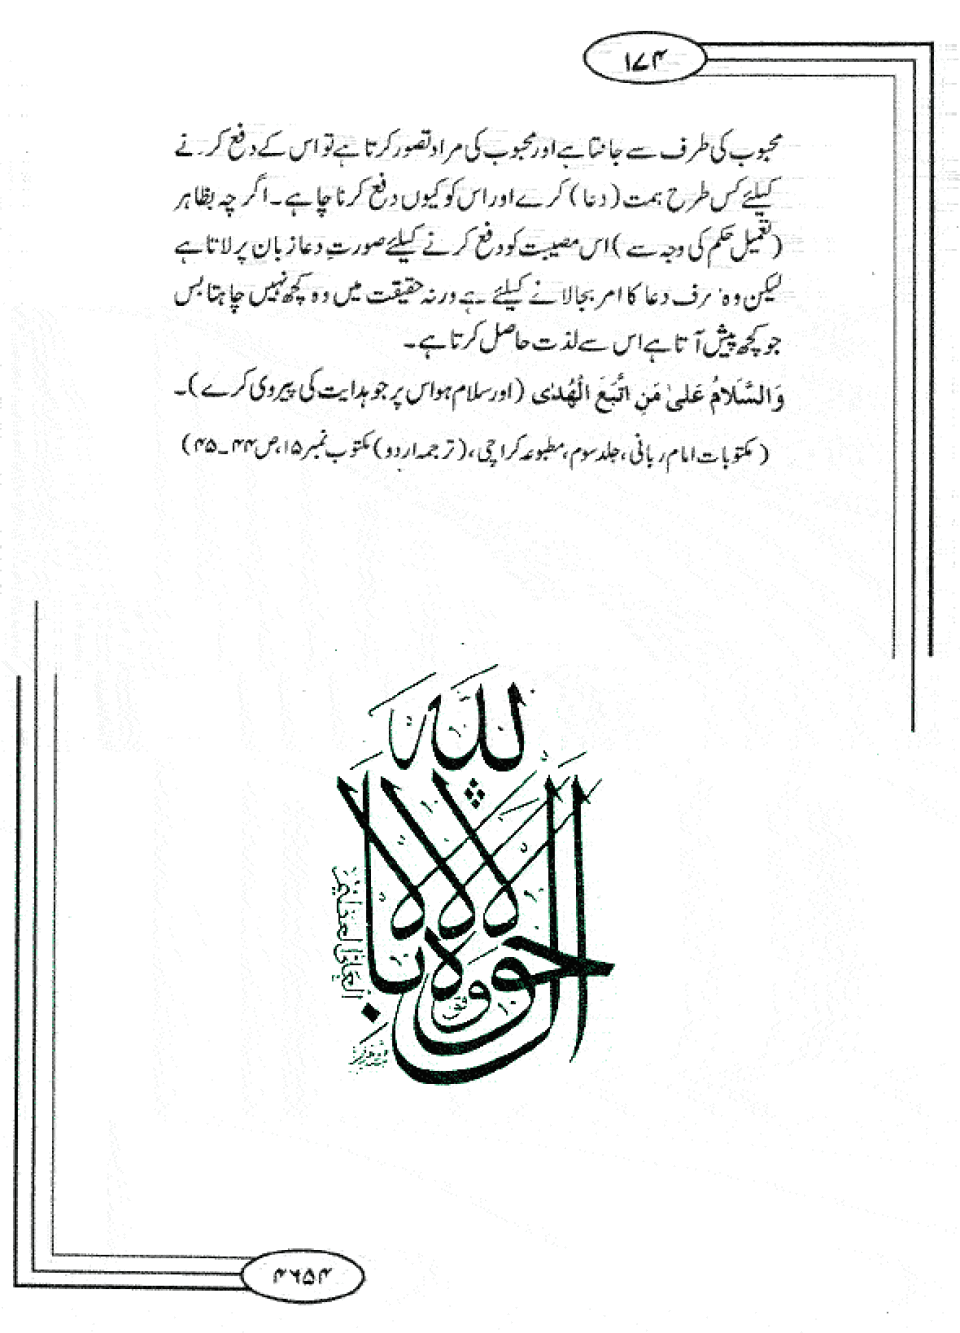 ۱۷۴
محبوب کی طرف سے جانتا ہے اور محبوب کی مراد تصور کرتا ہے تو اس کے دفع کرنے
کیلئے کس طرح ہمت (دعا) کرے اور اس کو کیوں دفع کرنا چاہے۔ اگرچہ بظاہر
(تعمیل حکم کی وجہ سے) اس مصیبت کو دفع کرنے کیلئے صورتِ دعا زبان پر لاتا ہے
لیکن وہ دعا کا امر بجا لانے کیلئے ہے ورنہ حقیقت میں وہ کچھ نہیں چاہتا بس
جو کچھ پیش آتا ہے اس سے لذت حاصل کرتا ہے۔
وَالسَّلَامُ عَلیٰ مَنِ اتَّبَعَ الْھُدٰی (اور سلام ہو اس پر جو ہدایت کی پیروی کرے)۔
(مکتوبات امام ربانی، جلد سوم، مطبوعہ کراچی، (ترجمہ اردو) مکتوب نمبر ۱۵، ص ۴۴۔۴۵)
لا حول ولا قوة الا بالله
العلي العظيم
۴۶۵۴